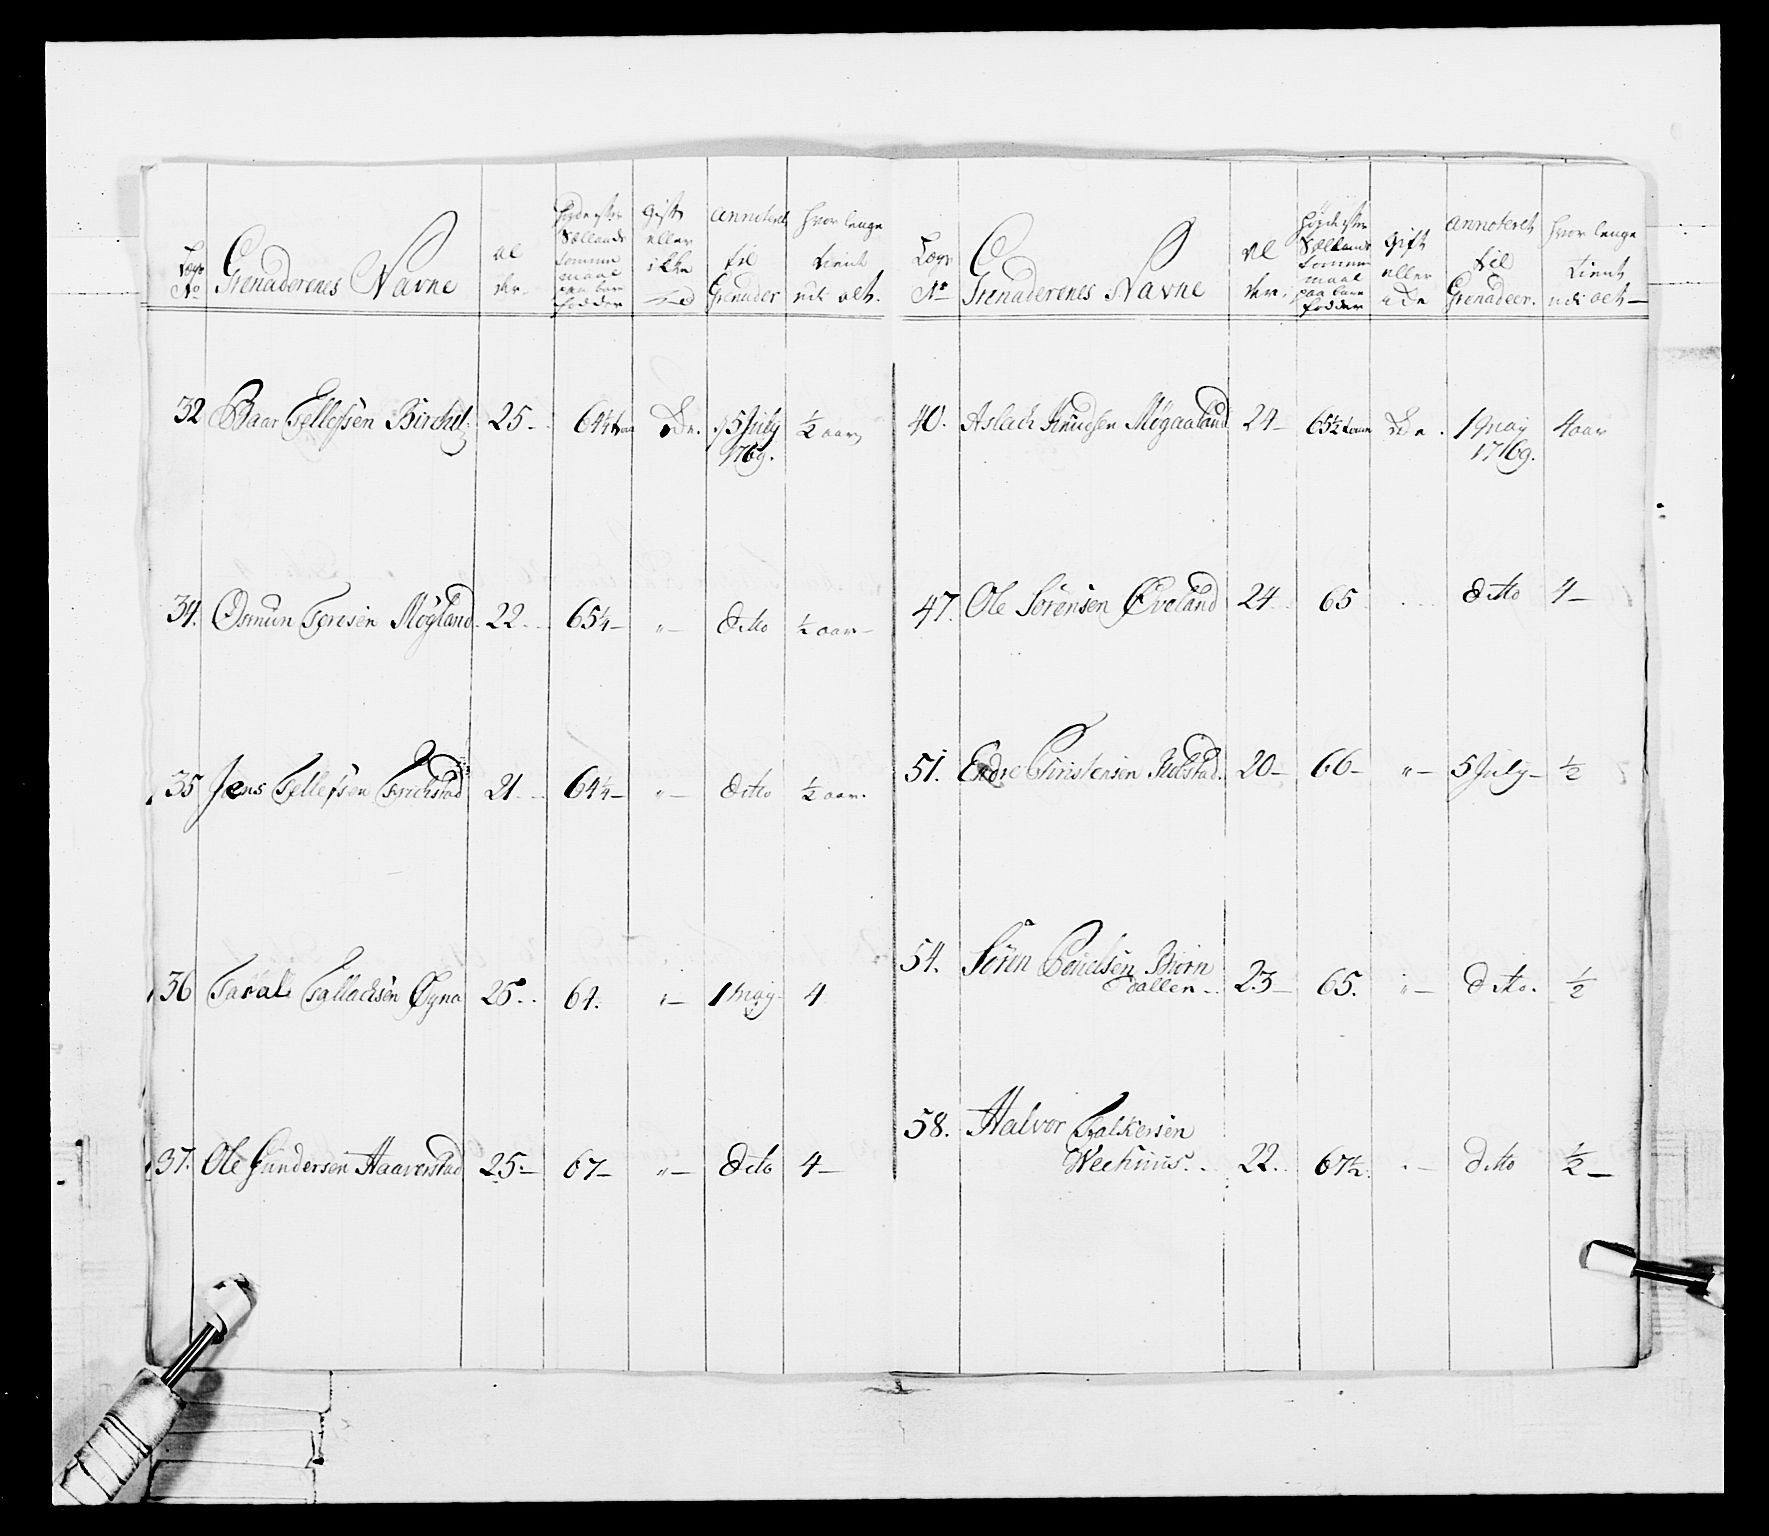 Lægs No | Grenaderenes Navne | al der. | Høyde efter Siællands tomme maal paa bare fødder | Gift eller ikke | annoteret til Grenader | hvor lenge tient udi alt.
32 Baar Tellefsen Birchel. 25 - 64¼ tom 5 July 1769. ½ aar
34. Osmun Tøresen Møgland. 22 - 65¼ - " - ditto ½ aar -
35 Jens Tellefsen 21 - 64¼ - " - ditto ½ aar.
36 Tallachsen Øyna 25 - 64. " - 1 may 4
37. Ole Gundersen Haaverstad 25 - 67 - " - dito 4 -
Lægs No | Grenaderenes Navne | al der. | Høyde efter Siællands tomme maal paa bare fødder | Gift eller | annoteret til Grenadeer. | hvor lenge tient udi alt -
40. Aslach Knudsen Møgaaland 24 - 65½ tomme 1 may 1769. 4 aar
47. Ole Sørensen Eveland 24 65 ditto 4 -
51. Endre Christensen 20 - 66 - " - 5 July - ½
54. Søren Poulsen Biorn
vallen - 23 - 65. " - ditto. ½
58. Halvor Falkersen
Wechuus. 22. 67½. ditto ½ -